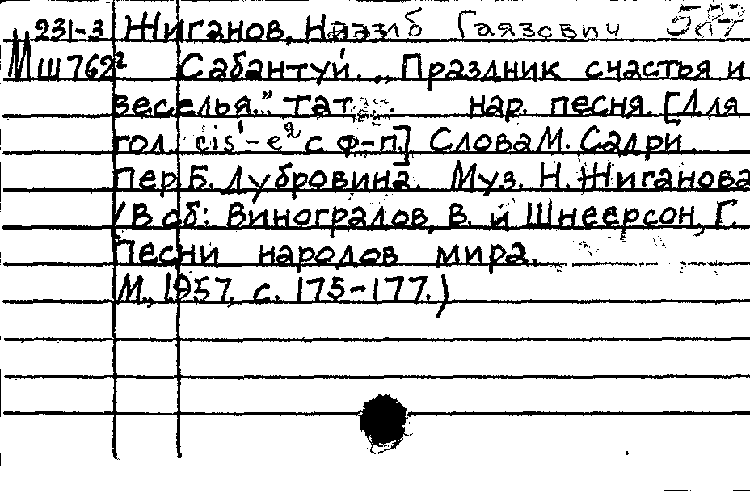 231-3 Жиганов, Назиб Гаязович 587
М Ш 762² Сабантуй. „Праздник счастья и
веселья." Тат. нар. песня. [Для
гол. cis¹-e² с ф-п.] Слова М. Садри.
Пер. Б. Дубровина. Муз. Н. Жиганова
/В сб: Виноградов, В. и Шнеерсон, Г.
Песни народов мира.
М., 1957, с. 175-177.)